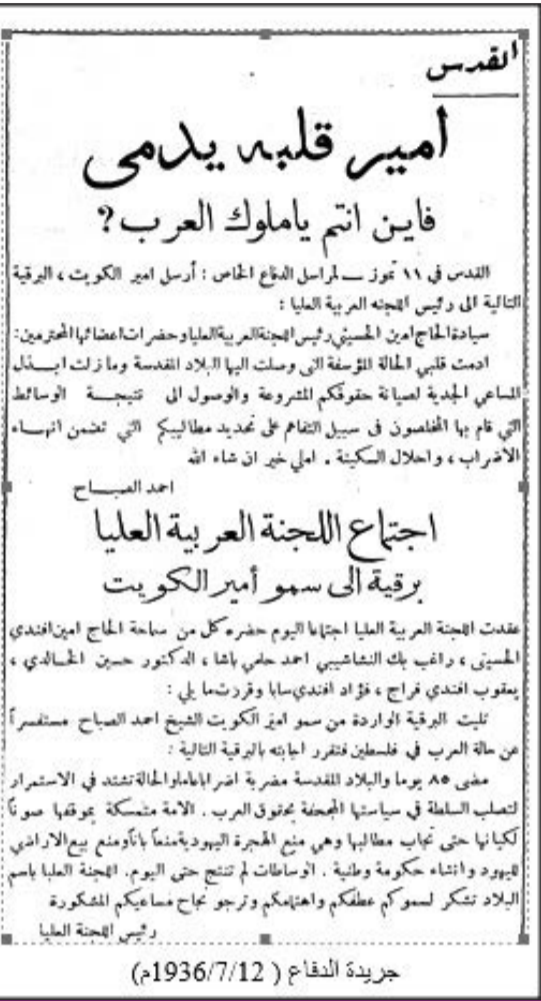 القدس
أمير قلبه يدمى
فاين انتم ياملوك العرب؟
القدس في ١١ تموز — لمراسل الدفاع الخاص : أرسل امير الكويت ، البرقية
التالية الى رئيس اللجنه العربية العليا :
سيادة الحاج امين الحسيني رئيس اللجنة العربية العليا وحضرات اعضائها المحترمين:
ادمت قلبي الحالة المؤسفة التى وصلت اليها البلاد المقدسة وما زلت ابذل
المساعي الجدية لصيانة حقوقكم المشروعة والوصول الى نتيجة الوسائط
التي قام بها المخلصون فى سبيل التفاهم على تحديد مطاليبكم التي تضمن انهاء
الأضراب ، واحلال السكينة . املي خير ان شاء الله
احمد الصباح
اجتماع اللجنة العربية العليا
برقية الى سمو أمير الكويت
عقدت اللجنة العربية العليا اجتماعا اليوم حضره كل من سماحة الحاج امين افندي
الحسينى ، راغب بك النشاشيبي احمد حلمي باشا ، الدكتور حسين الخالدي ،
يعقوب افندي فراج ، فؤاد افندي سابا وقررت ما يلي :
تليت البرقية الواردة من سمو امير الكويت الشيخ احمد الصباح مستفسراً
عن حالة العرب في فلسطين فتقرر اجابته بالبرقية التالية :
مضى ٨٥ يوما والبلاد المقدسة مضربة اضرابا عاما والحالة تشتد في الاستمرار
لتصلب السلطة في سياستها المجحفة بحقوق العرب . الامة متمسكة بموقفها صوناً
لكيانها حتى تجاب مطالبها وهي منع الهجرة اليهودية منعاً باتاً ومنع بيع الاراضي
لليهود وانشاء حكومة وطنية . الوساطات لم تنتج حتى اليوم. اللجنة العليا باسم
البلاد تشكر لسموكم عطفكم واهتمامكم وترجو نجاح مساعيكم المشكورة
رئيس اللجنة العليا
جريدة الدفاع ( 1936/7/12م)